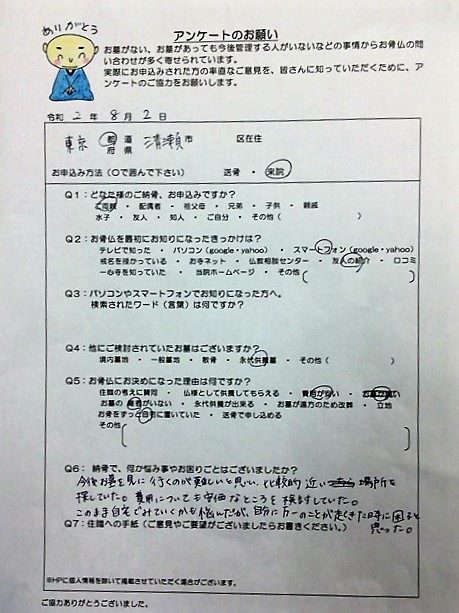 ありがとう
アンケートのお願い
お墓がない、お墓があっても今後管理する人がいないなどの事情からお骨仏の問
い合わせが多く寄せられています。
実際にお申込みされた方の率直なご意見を、皆さんに知っていただくために、ア
ンケートのご協力をお願いします。
令和 2 年 8 月 2 日
東京 都 道 府 県 清瀬 市 区在住
お申込み方法(〇で囲んで下さい) 送骨 ・ 来院
Q1:どなた様のご納骨、お申込みですか?
ご両親 ・ 配偶者 ・ 祖父母 ・ 兄弟 ・ 子供 ・ 親戚
水子 ・ 友人 ・ 知人 ・ ご自分 ・ その他( )
Q2:お骨仏を最初にお知りになったきっかけは?
テレビで知った ・ パソコン(google・yahoo) ・ スマートフォン(google・yahoo)
戒名を授かっている ・ お寺ネット ・ 仏教相談センター ・ 友人の紹介 ・ 口コミ
一心寺を知っていた ・ 当院ホームページ ・ その他( )
Q3:パソコンやスマートフォンでお知りになった方へ。
検索されたワード(言葉)は何ですか?
Q4:他にご検討されていたお墓はございますか?
境内墓地 ・ 一般墓地 ・ 散骨 ・ 永代供養墓 ・ その他( )
Q5:お骨仏にお決めになった理由は何ですか?
住職の考えに賛同 ・ 仏様として供養してもらえる ・ 費用が安い ・ お墓が遠い
お墓の 継者がいない ・ 永代供養が出来る ・ お墓が遠方のため改葬 ・ 立地
お骨をずっと自宅に置いていた ・ 送骨で申し込める
その他( )
Q6: 納骨で、何か悩み事やお困りごとはございましたか?
今後お墓を見に行くのが難しいと思い、比較的 近い 場所を
探していた。費用についても安価なところを検討していた。
このまま自宅でみていくかも悩んだが、自分に万一のことが起きた時に困ると
思った。
Q7:住職への手紙(ご意見やご要望がございましたらお書きください。)
※HPに個人情報を除いて掲載させていただく場合がございます。
ご協力ありがとうございました。